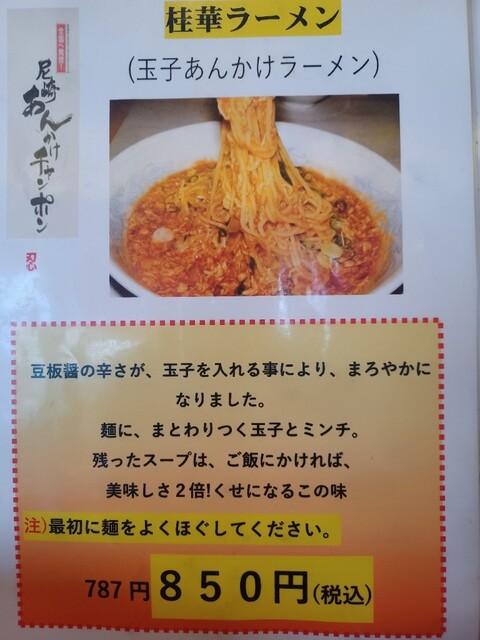 桂華ラーメン
(玉子あんかけラーメン)
尼崎あんかけチャンポン
豆板醤の辛さが、玉子を入れる事により、まろやかに
なりました。
麺に、まとわりつく玉子とミンチ。
残ったスープは、ご飯にかければ、
美味しさ２倍!くせになるこの味
注)最初に麺をよくほぐしてください。
787円８５０円(税込)